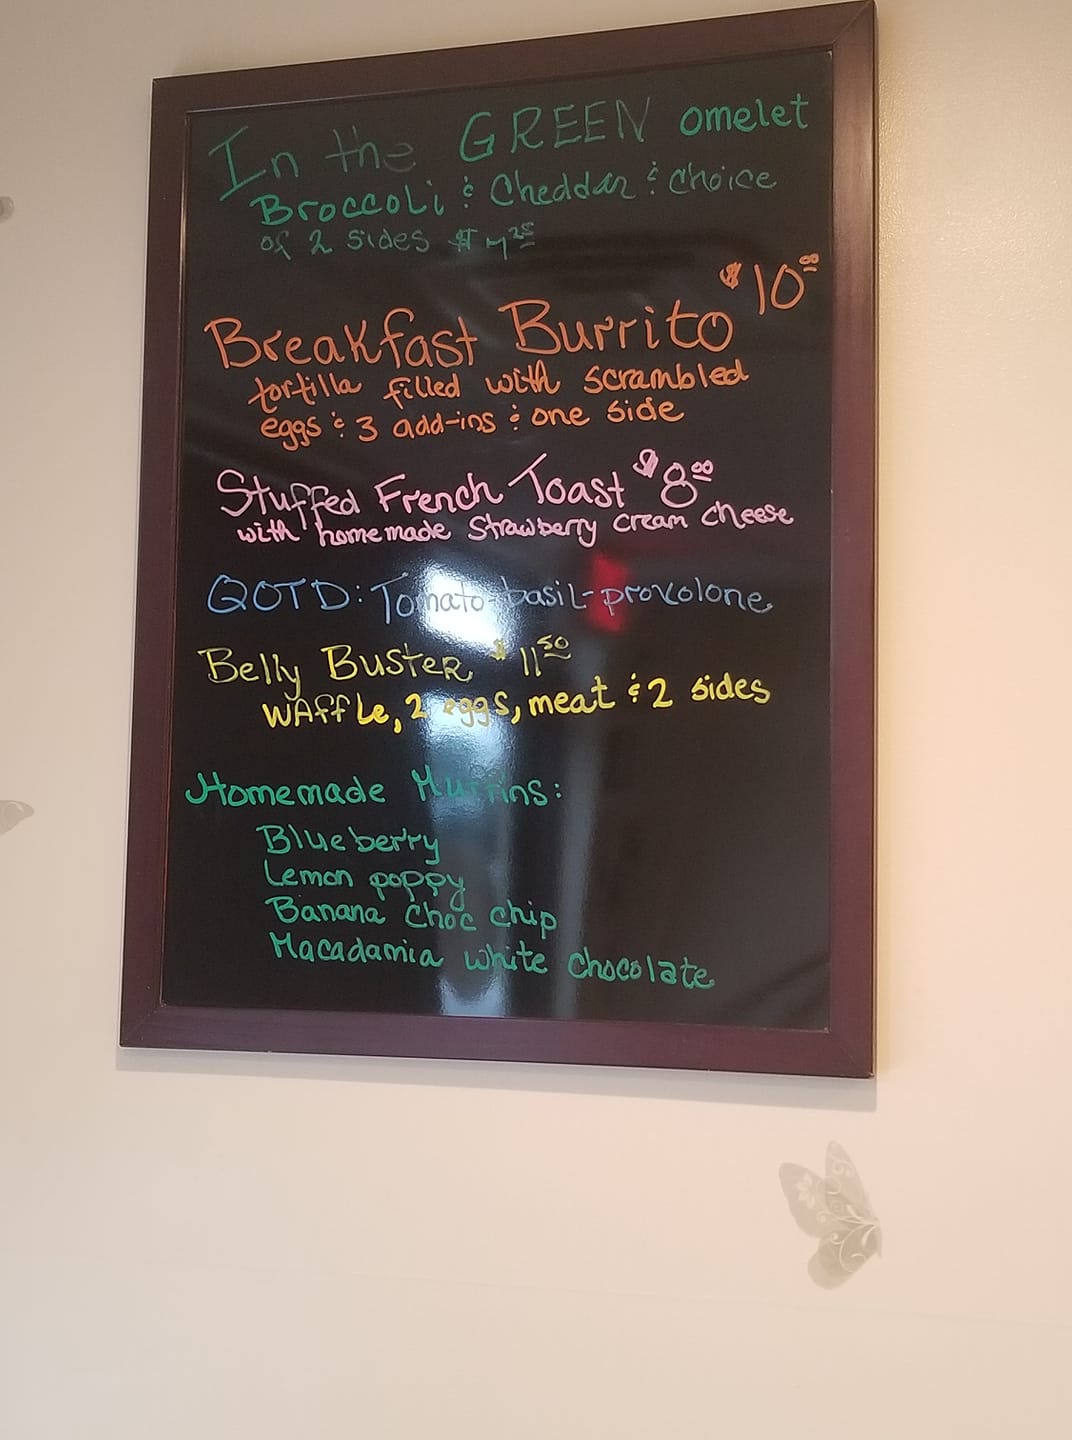 In the GREEN omelet
Broccoli & Cheddar & choice
of 2 sides $ 7 25
$10 00
Breakfast Burrito
tortilla filled with scrambled
eggs & 3 add-ins & one side
Stuffed French Toast $8 00
with homemade strawberry cream cheese
QOTD: Tomato-basil-provolone
Belly Buster $11 50
Waffle, 2 eggs, meat & 2 sides
Homemade Muffins:
Blueberry
Lemon poppy
Banana Choc chip
Macadamia white chocolate